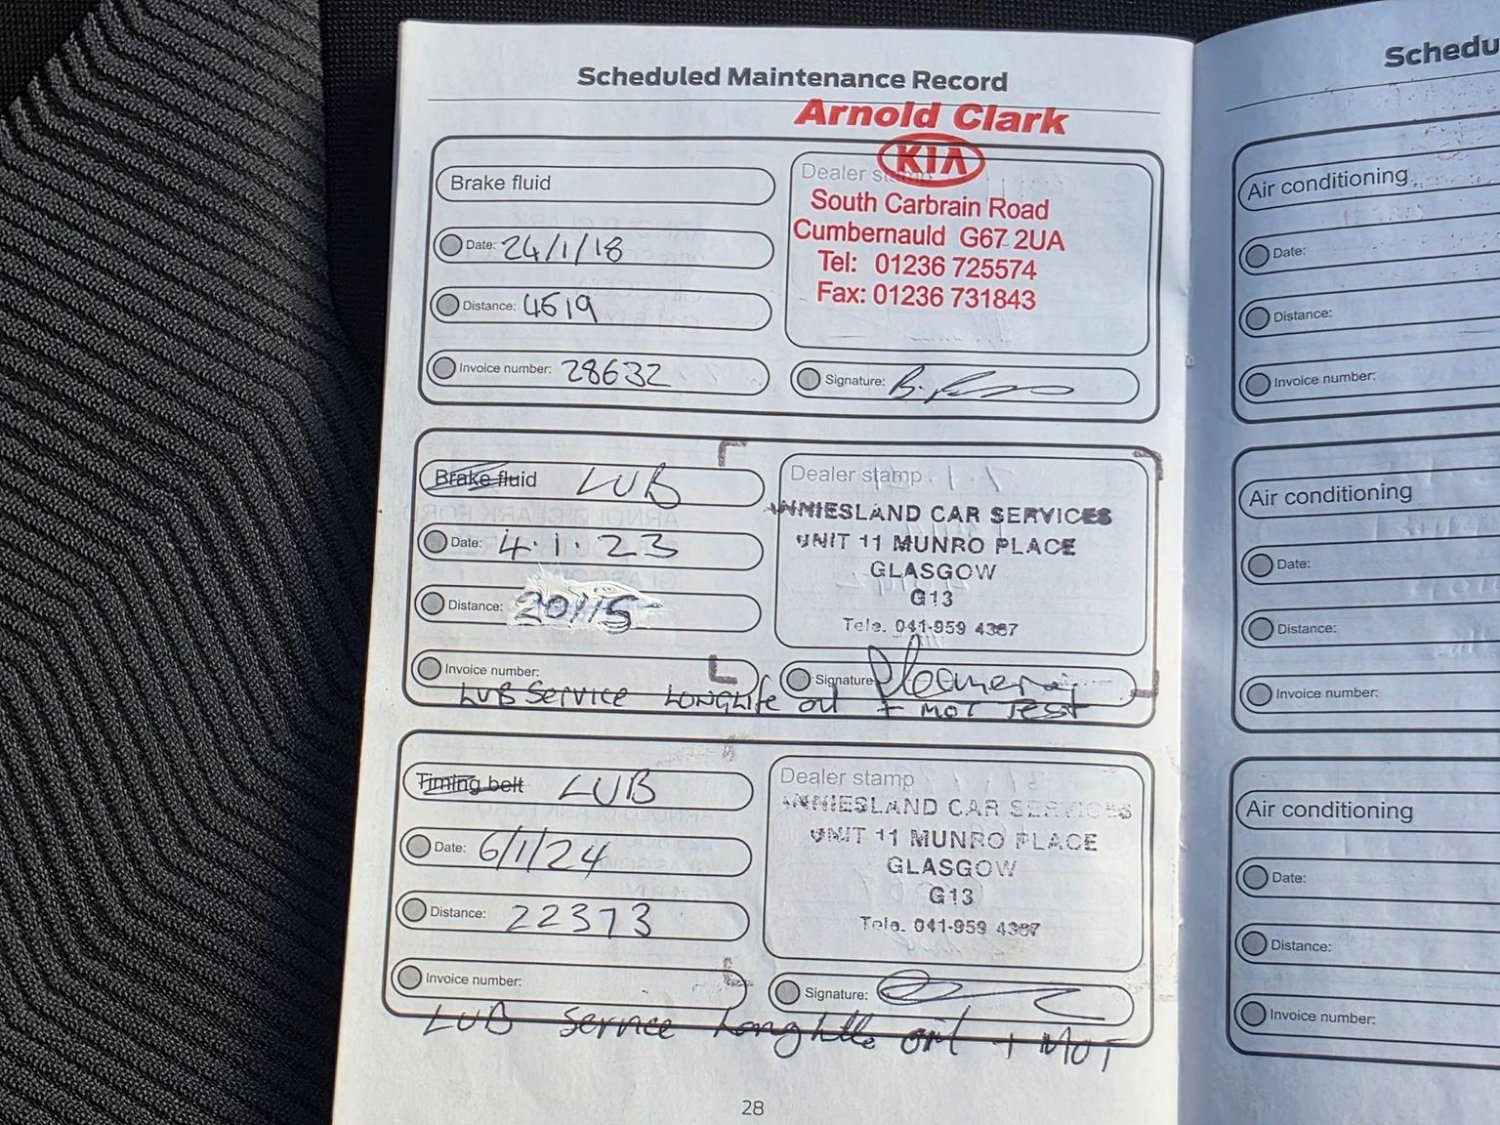 Scheduled Maintenance Record
Arnold Clark
KIA
Brake fluid
Dealer stamp
South Carbrain Road
Cumbernauld G67 2UA
Tel: 01236 725574
Fax: 01236 731843
Date: 24/1/18
Distance: 4619
Invoice number: 28632
Signature:
Brake fluid LUB
Dealer stamp
ANNIESLAND CAR SERVICES
UNIT 11 MUNRO PLACE
GLASGOW
G13
Tele. 041-959 4387
Date: 4.1.23
Distance: 20115
Invoice number:
Signature
LUB SERVICE LONGLIFE oil + MOT TEST
Timing belt LUB
Dealer stamp
ANNIESLAND CAR SERVICES
UNIT 11 MUNRO PLACE
GLASGOW
G13
Tele. 041-959 4387
Date: 6/1/24
Distance: 22373
Invoice number:
Signature:
LUB Service Longlife oil + MOT
28
Schedu
Air conditioning
Date:
Distance:
Invoice number:
Air conditioning
Date:
Distance:
Invoice number:
Air conditioning
Date:
Distance:
Invoice number: